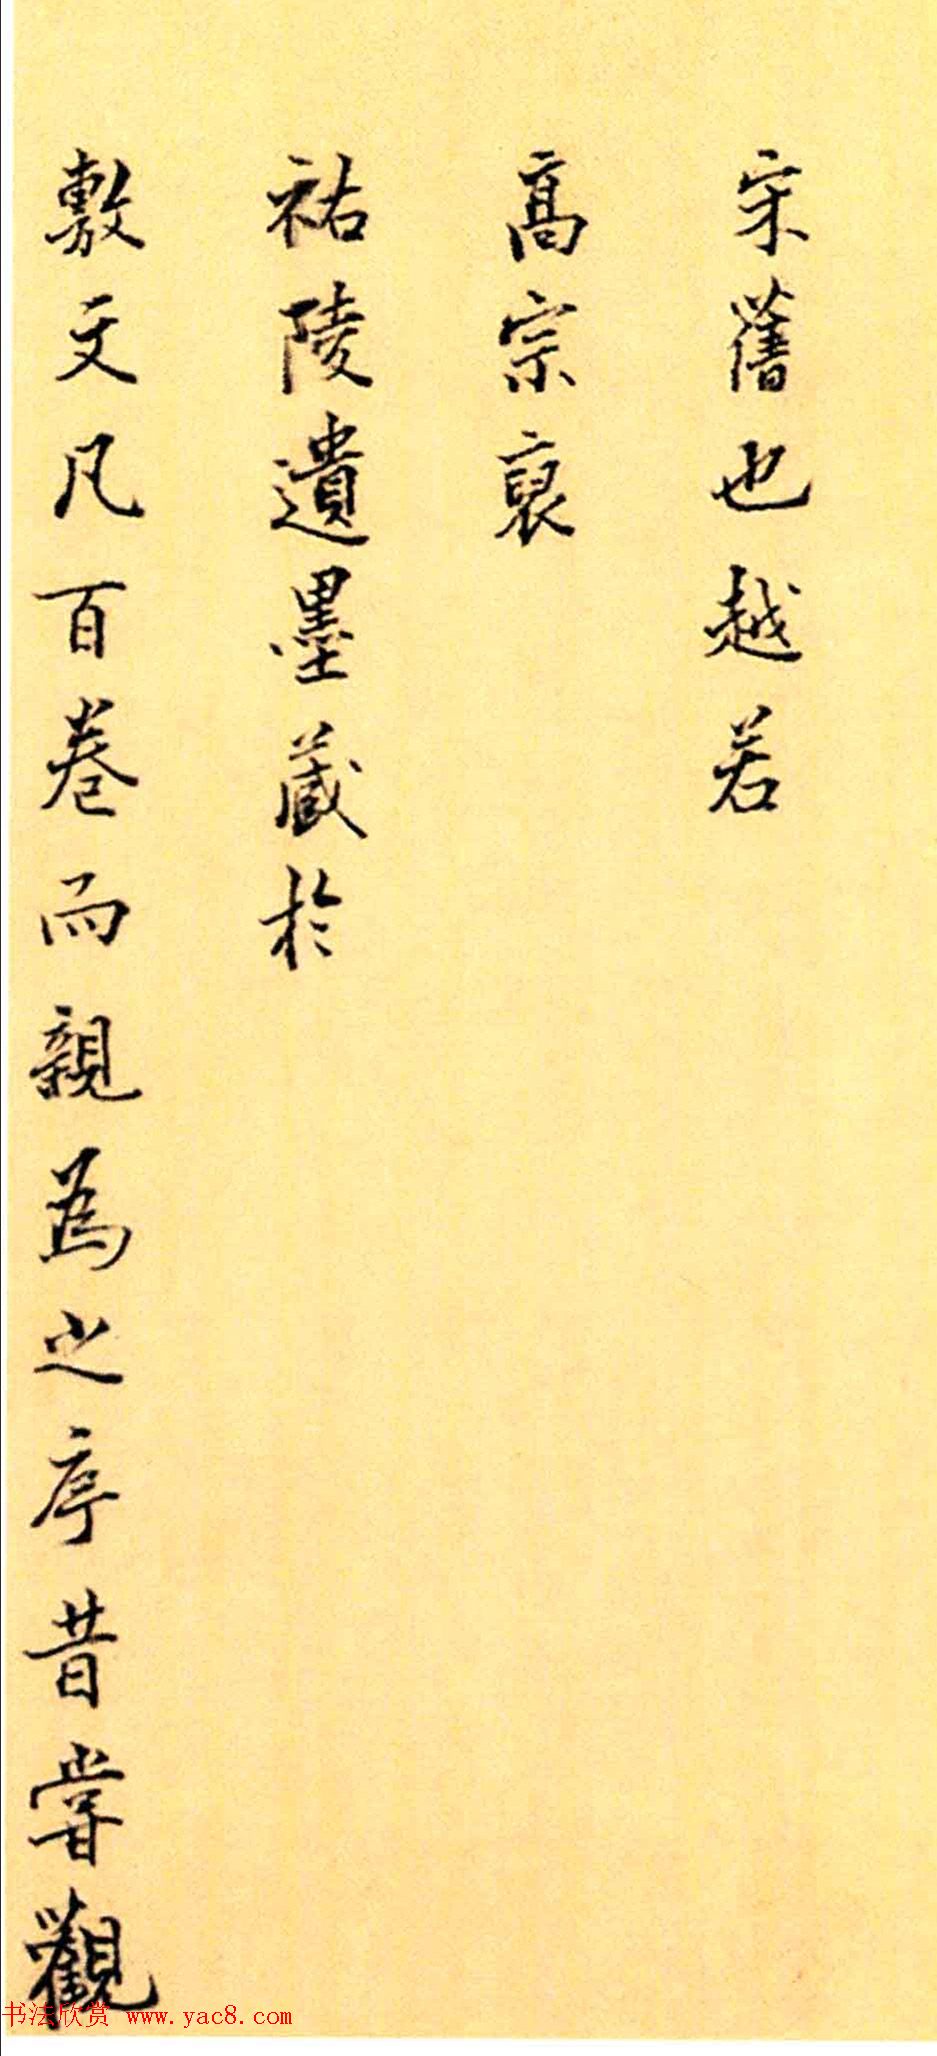 宋舊也越若
高宗裒
祐陵遺墨藏於
敷文凡百卷而親為之序昔嘗觀
书法欣赏 www.yac8.com